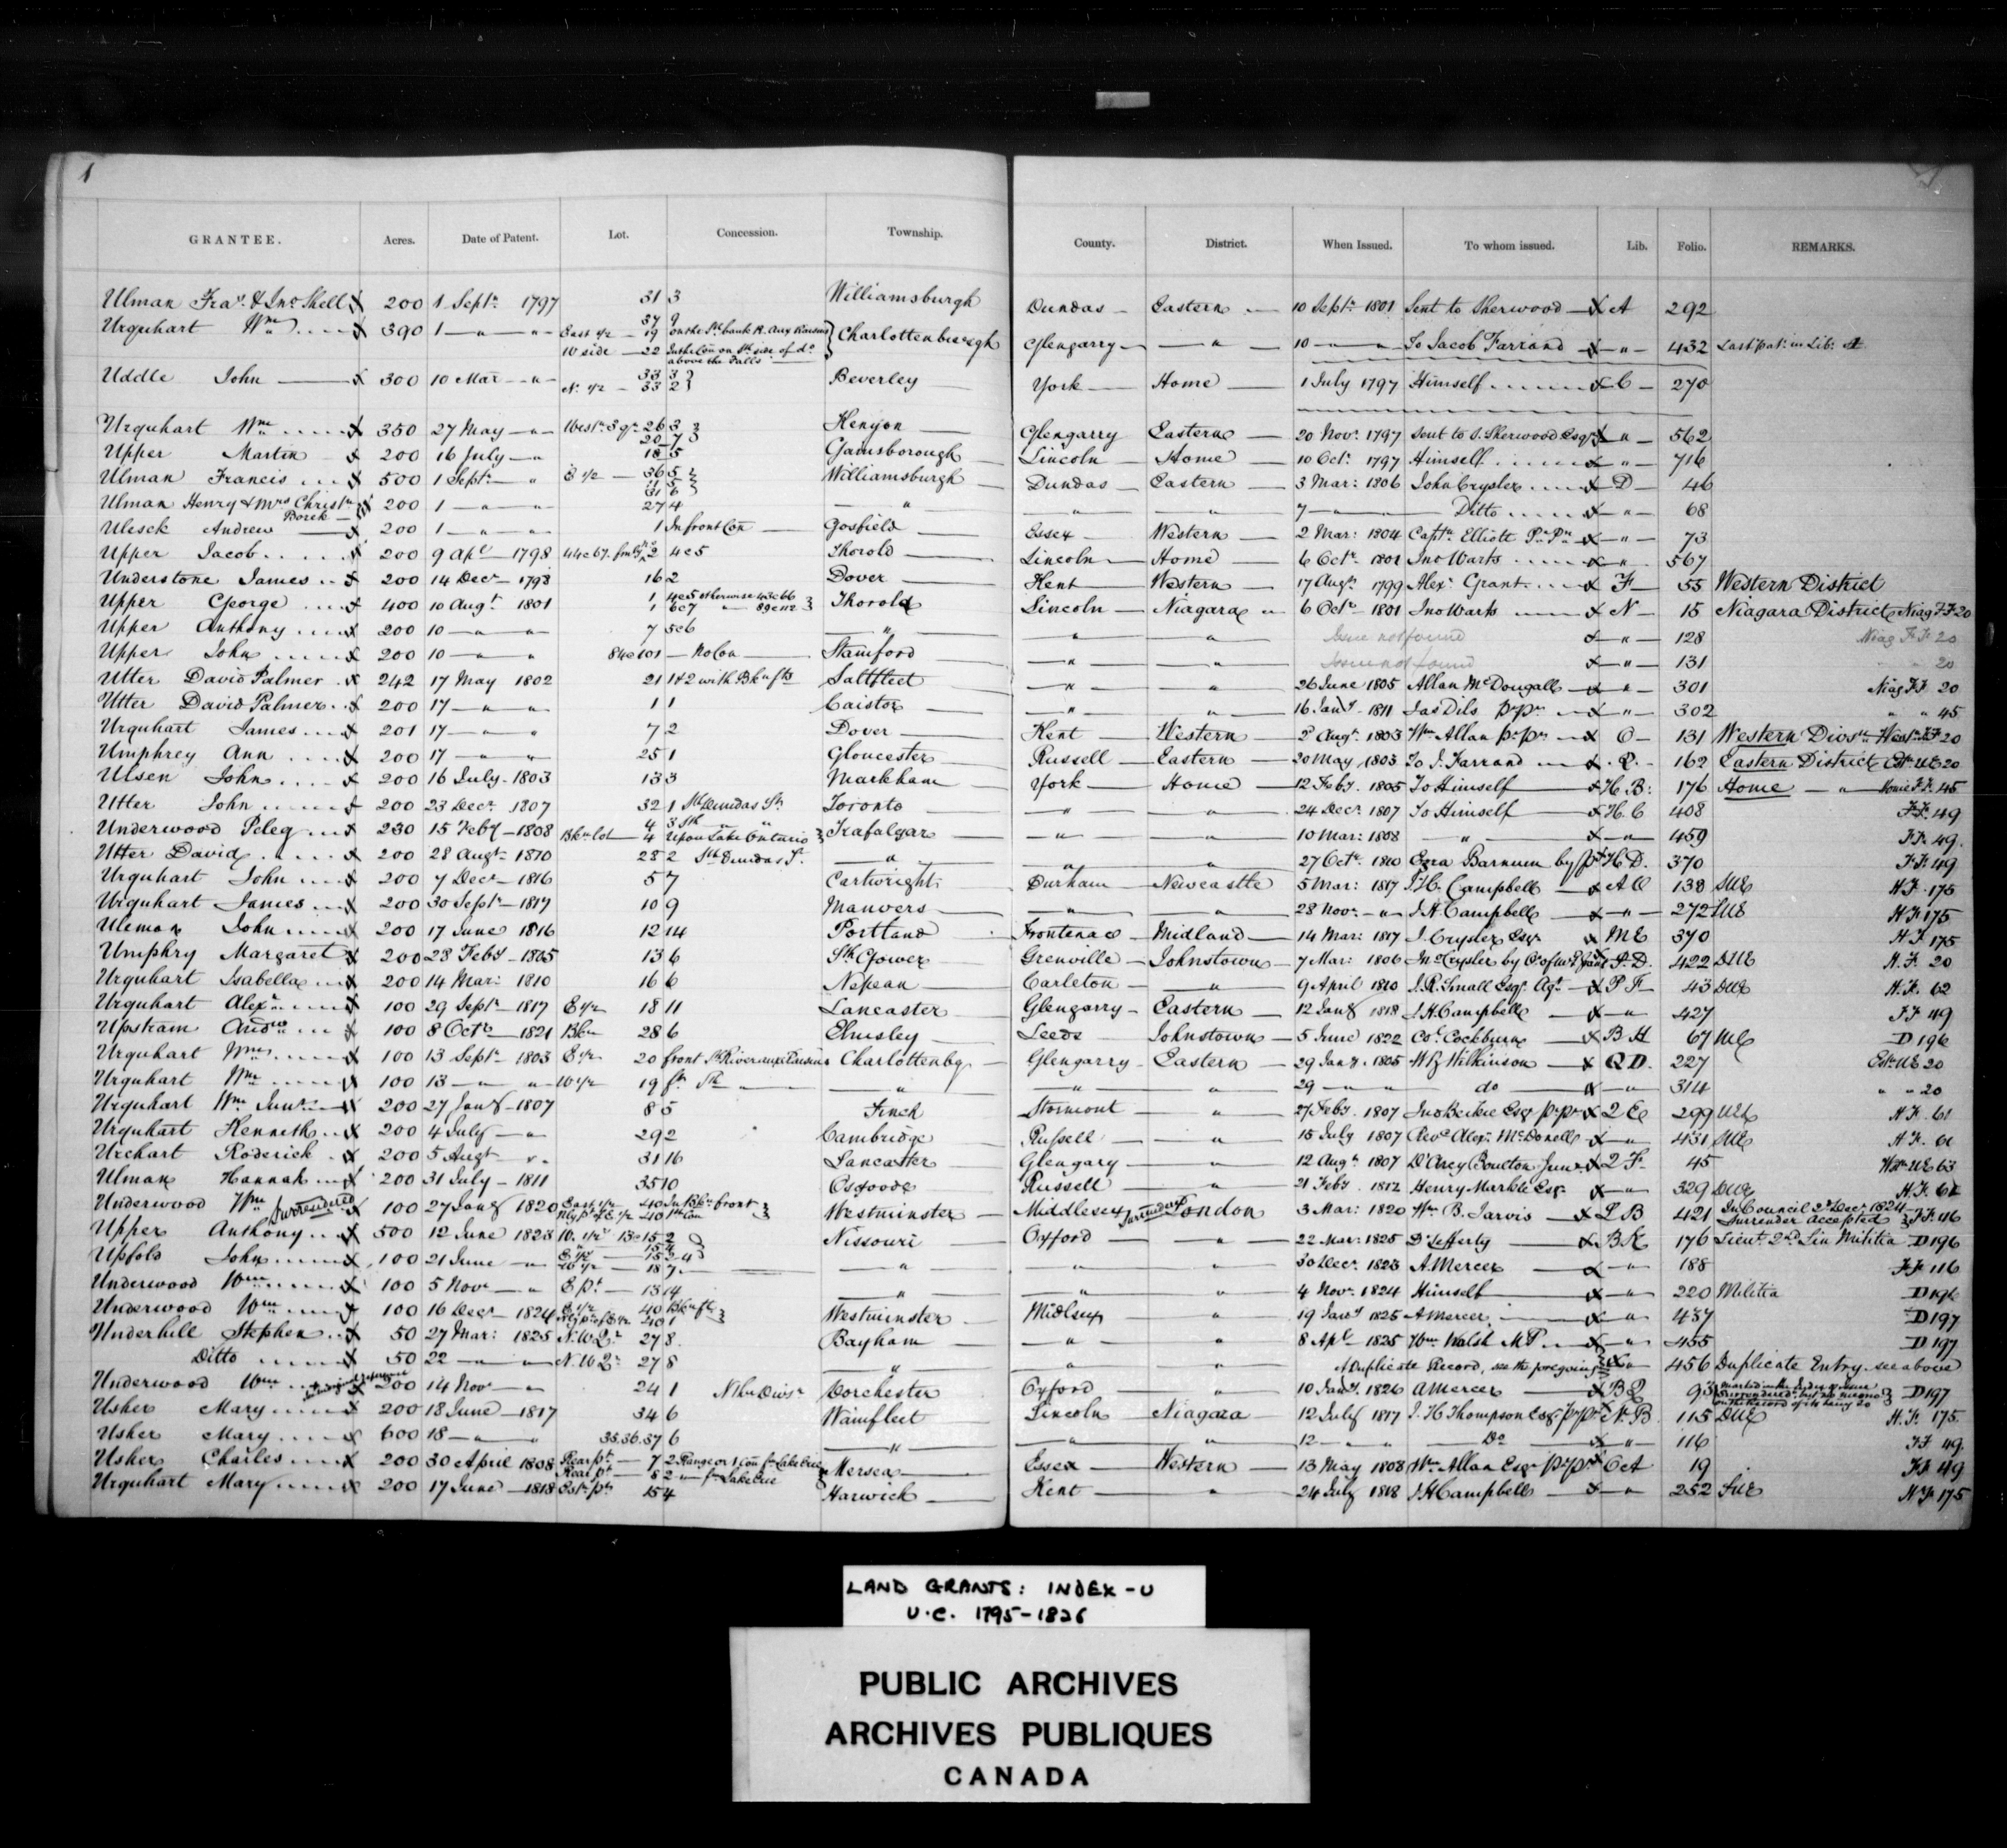 1
GRANTEE. Acres. Date of Patent. Lot. Concession. Township. County. District. When Issued. To whom issued. Lib. Folio. REMARKS.
Ulman Fras. & Jno Shell 200 1 Septr 1797 31 3 Williamsburgh Dundas Eastern 10 Septr 1801 Sent to Sherwood A 292
37 9
Urquhart Wm 390 1 " " East 1/2 19 on the Sth bank R. aux Raisins } Charlottenburgh Glengarry " 10 " To Jacob Farrand " 432 Last pat: in Lib: A
W side 22 In the Con on Sth side of do above the Falls
Uddle John 300 10 Mar " 33 3 } Beverley York Home 1 July 1797 Himself C 270
N. 1/2 33 2 }
Urquhart Wm 350 27 May " West. 3 qr 26 3 } Kenyon Glengarry Eastern 20 Novr 1797 Sent to S. Sherwood Esqr " 562
20 7 }
Upper Martin 200 16 July " 18 5 Gainsborough Lincoln Home 10 Octr 1797 Himself " 716
Ulman Francis 500 1 Septr " E 1/2 36 5 } Williamsburgh Dundas Eastern 3 Mar: 1806 John Crysler D 46
31 6
Ulman Henry & Mrs Christn Borek 200 1 " " 27 4 " " " 7 " Ditto " 68
Ulesck Andrew 200 1 " " 1 In front Con Gosfield Essex Western 2 Mar: 1804 Captn Elliott Pr Pn " 73
Upper Jacob 200 9 Apl 1798 44 & 67. 2 4 & 5 Thorold Lincoln Home 6 Octr 1801 Jno Warts " 567
Understone James 200 14 Decr 1798 16 2 Dover Kent Western 17 Augt 1799 Alexr Grant F 55 Western District
Upper George 400 10 Augt 1801 1 4 & 5 otherwise 43 & 66 } Thorold Lincoln Niagara 6 Octr 1801 Jno Warts N 15 Niagara District Niag FF 20
1 6 & 7 " 89 & 112
Upper Anthony 200 10 " " 7 5 & 6 " " " Issue not found " 128 Niag FF 20
Upper John 200 10 " " 84 & 101 No Con Stamford " " Issue not found " 131 20
Utter David Palmer 242 17 May 1802 21 1 & 2 with Bkn fts Saltfleet " " 26 June 1805 Allan McDougall " 301 Niag FF 20
Utter David Palmer 200 17 " " 1 1 Caistor " " 16 Jany 1811 Jas Dils pr Pn " 302 " " 45
Urquhart James 201 17 " " 7 2 Dover Kent Western 2 Augt 1803 Wm Allan pr Pn O 131 Western Divsn West. FF 20
Umphrey Ann 200 17 " " 25 1 Gloucester Russell Eastern 20 May 1803 To J. Farrand Q. 162 Eastern District Estn UE 20
Ulsen John 200 16 July 1803 13 3 Markham York Home 12 Feby 1805 To Himself H B: 176 Home " Home FF 45
Utter John 200 23 Decr 1807 32 1 Sth Dundas St. Toronto " " 24 Decr 1807 To Himself H. C 408 FF 49
4 3 Sth " "
Underwood Peleg 230 15 Feby 1808 Bkn lot 4 Upon Lake Ontario } Trafalgar " " 10 Mar: 1808 " " 459 FF 49.
Utter David 200 28 Augt 1810 28 2 Sth Dundas St. " " " 27 Octr 1810 Ezra Barnum by pt H D. 370 FF 49
Urquhart John 200 7 Decr 1816 5 7 Cartwright Durham Newcastle 5 Mar: 1817 J. H. Campbell A C 138 SUE HF 175
Urquhart James 200 30 Septr 1817 10 9 Manvers " " 28 Novr " J H Campbell " 272 SUE HF 175
Uleman John 200 17 June 1816 12 14 Portland Frontenac Midland 14 Mar: 1817 J. Crysler Esqr M E 370 HF 175
Umphry Margaret 200 28 Feby 1805 13 6 Sth Gower Grenville Johnstown 7 Mar: 1806 Jno Crysler by P. D. 422 DUE H.F. 20
Urquhart Isabella 200 14 Mar: 1810 16 6 Nepean Carleton " 9 April 1810 J. R. Small Esqr Agt P F 43 DUE H.F. 62
Urquhart Alexr 100 29 Septr 1817 E 1/2 18 11 Lancaster Glengarry Eastern 12 Jany 1818 J H Campbell " 427 FF 49
Upstram Andw 100 8 Octr 1821 Bkn 28 6 Elmsley Leeds Johnstown 5 June 1822 Col Cockburn B H 67 UE D 196
Urquhart Wm 100 13 Septr 1803 E 1/2 20 front Sth River aux Raisins Charlottenbg Glengarry Eastern 29 Jany 1805 W R Wilkinson Q D. 227 Estn UE 20
Urquhart Wm 100 13 " " W 1/2 19 ft Sth " " " " 29 " " do " 314 " " 20
Urquhart Wm Junr 200 27 Jany 1807 8 5 Finch Stormont " 27 Feby 1807 Jno Beikie Esqr pr pn 2 E 299 UE H.F. 61
Urquhart Kenneth 200 4 July " 29 2 Cambridge Russell " 15 July 1807 Revd Alexr McDonell " 431 SUE H.F. 61
Urchart Roderick 200 5 Augt " 31 16 Lancaster Glengary " 12 Augt 1807 D'Arcy Boulton Junr 2 F 45 UE 63
Ulman Hannah 200 31 July 1811 35 10 Osgoode Russell " 21 Feby 1812 Henry Markle Esqr " 329 DUE H.F. 62
Underwood Wm Surrendered 100 27 Jany 1820 East 1/2 40 In Bkn front } Westminster Middlesex Surrendered London 3 Mar: 1820 Wm B. Jarvis L B 421 In Council 2d Decr 1824 Surrender Accepted } FF 116
Upper Anthony 500 12 June 1823 W. 1/2 13 & 15 2 } Nissouri Oxford " 22 Mar: 1825 Dr Lefferty B K 176 Lieut. 2nd Lin Militia D 196
Upfold John 100 21 June " W 1/2 18 7 " " " 30 Decr 1823 A. Mercer " 188 FF 116
Underwood Wm 100 5 Novr " E Pt 13 14 " " " 4 Novr 1824 Himself " 220 Militia D 196
Underwood Wm 100 16 Decr 1824 E 1/2 40 Bkn ft } Westminster Midlsex " 19 Jany 1825 A Mercer " 437 D 197
Underhill Stephen 50 27 Mar: 1825 N. W Qr 27 8 Bayham " " 8 Apl 1825 Wm Walsh MP " 455 D 197
Ditto 50 22 " " N. W Qr 27 8 " " " A Duplicate Record, see the foregoing " 456 Duplicate Entry see above
Underwood Wm 200 14 Novr " 24 1 Nthn Divsn Dorchester Oxford " 10 Jany 1826 A Mercer B Q 93 D 197
Usher Mary 200 18 June 1817 34 6 Wainfleet Lincoln Niagara 12 July 1817 J. H Thompson Esqr pr pn N. B 115 DUE H.F. 175
Usher Mary 600 18 " " 35.36.37 6 " " " 12 " " Do " 116 FF 49.
Usher Charles 200 30 April 1808 Rear pt 7 2 Range or 1 Con fm Lake Erie } Mersea Essex Western 13 May 1808 Wm Allan Esqr pr pn 19 FF 49
Rear pt 8 2 " fm Lake Erie
Urquhart Mary 200 17 June 1818 Est. pt 15 4 Harwich Kent " 24 July 1818 J H Campbell " 252 SUE HF 175
LAND GRANTS: INDEX - U
U.C. 1795-1826
PUBLIC ARCHIVES
ARCHIVES PUBLIQUES
CANADA